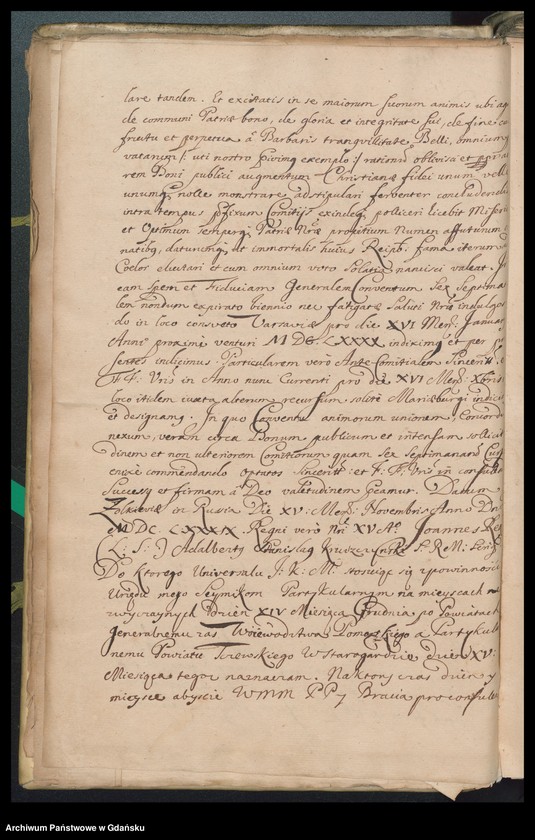 lare tandem. Et excitatis in se maiorum suorum animis ubi
de communi Patriæ bono, de gloria et integritate sui, de fine
fructu et perpetua á Barbaris tranquillitate Belli, omnium
uti nostro exemplo rationũ oblivisci et
rem Boni publici augmentum Christianæ fidei unum velle
unumq nolle monstrare, adstipulari ferventer concludere
intra tempus pfixum Comitijs exindeq polliceri licebit
et Optimum semperq Patriæ Nræ propitium Numen affuturum
daturumq ut immortalis huius Reipb: fama iterum
Coelos eluctari et cum omnium voto Solatia nancisci valeat.
eam Spem et Fiduciam Generalem Conventum Sex Septima
lem nondum expirato biennio nec fatigatæ Saluti Nræ indulgen
do in loco consveto Varsaviæ pro die XVI Mens: Januar
Anni proximè venturi M DC. LXXXX indiximq et per
sentes indicimus. Particularem verò Ante Comitialem Sinceritt: et
F. F. Vris in Anno nunc Currenti pro die XVI Mens: Xbris
loco itidem iuxta alternum recursum solito Mariæburgi
et designamq. In quo Conventu animorum unionem, Concord
nexum, veram circa Bonum publicum et intensam sollici
dinem et non ulteriorem Comitiorum quam sex Septimanarum
commendando optatos Sinceritt: et F. F. Vris in
Successq et firmam á Deo valetudinem precamur. Datum
Zolkieviæ in Russia Die XV. Mens: Novembris Anno Dni
M DC. LXXXIX. Regni verò Nri XV Ao. Joannes Rex
(L: S:) Adalbertq Stanislaq S. R. M.
Do ktorego Universału J. K. M. stosuiąc się z powinności
Urzędu mego Seymikom Partykularnym na mieyscach
zwyczaynych Dzień XIV Miesiąca Grudnia po Powiatach
Generalnemu zas Woiewodztwa Pomorskiego a Partykul
nemu Powiatu Tczewskiego w Starogardzie dzień XV.
Miesiąca tegoż naznaczam. Na ktory czas dzien y
mieysce abyście WMM PP y Bracia pro consulu
Archiwum Państwowe w Gdańsku